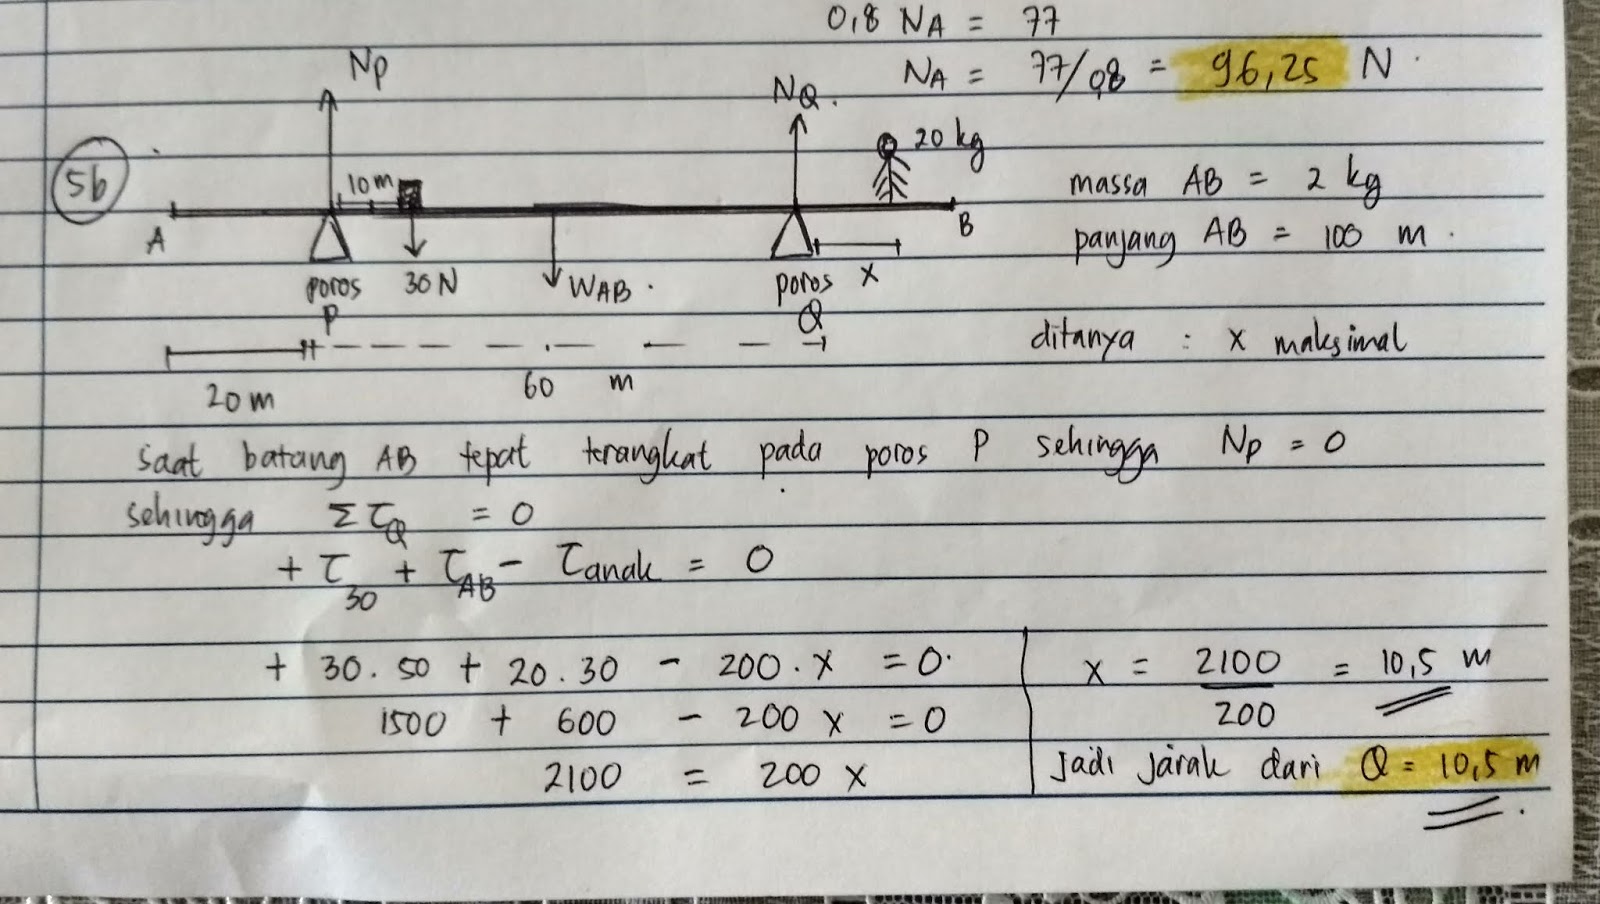 0,8 NA = 77
NA = 77/0,8 = 96,25 N
5b
NP
NQ.
10m
20 kg
A
B
poros P
30 N
WAB.
poros Q
x
20 m
60 m
massa AB = 2 kg
panjang AB = 100 m.
ditanya : x maksimal
saat batang AB tepat terangkat pada poros P sehingga Np = 0
sehingga ΣτQ = 0
+ τ30 + τAB - τanak = 0
+ 30. 50 + 20 . 30 - 200 . x = 0.
1500 + 600 - 200 x = 0
2100 = 200 x
x = 2100/200 = 10,5 m
Jadi jarak dari Q = 10,5 m